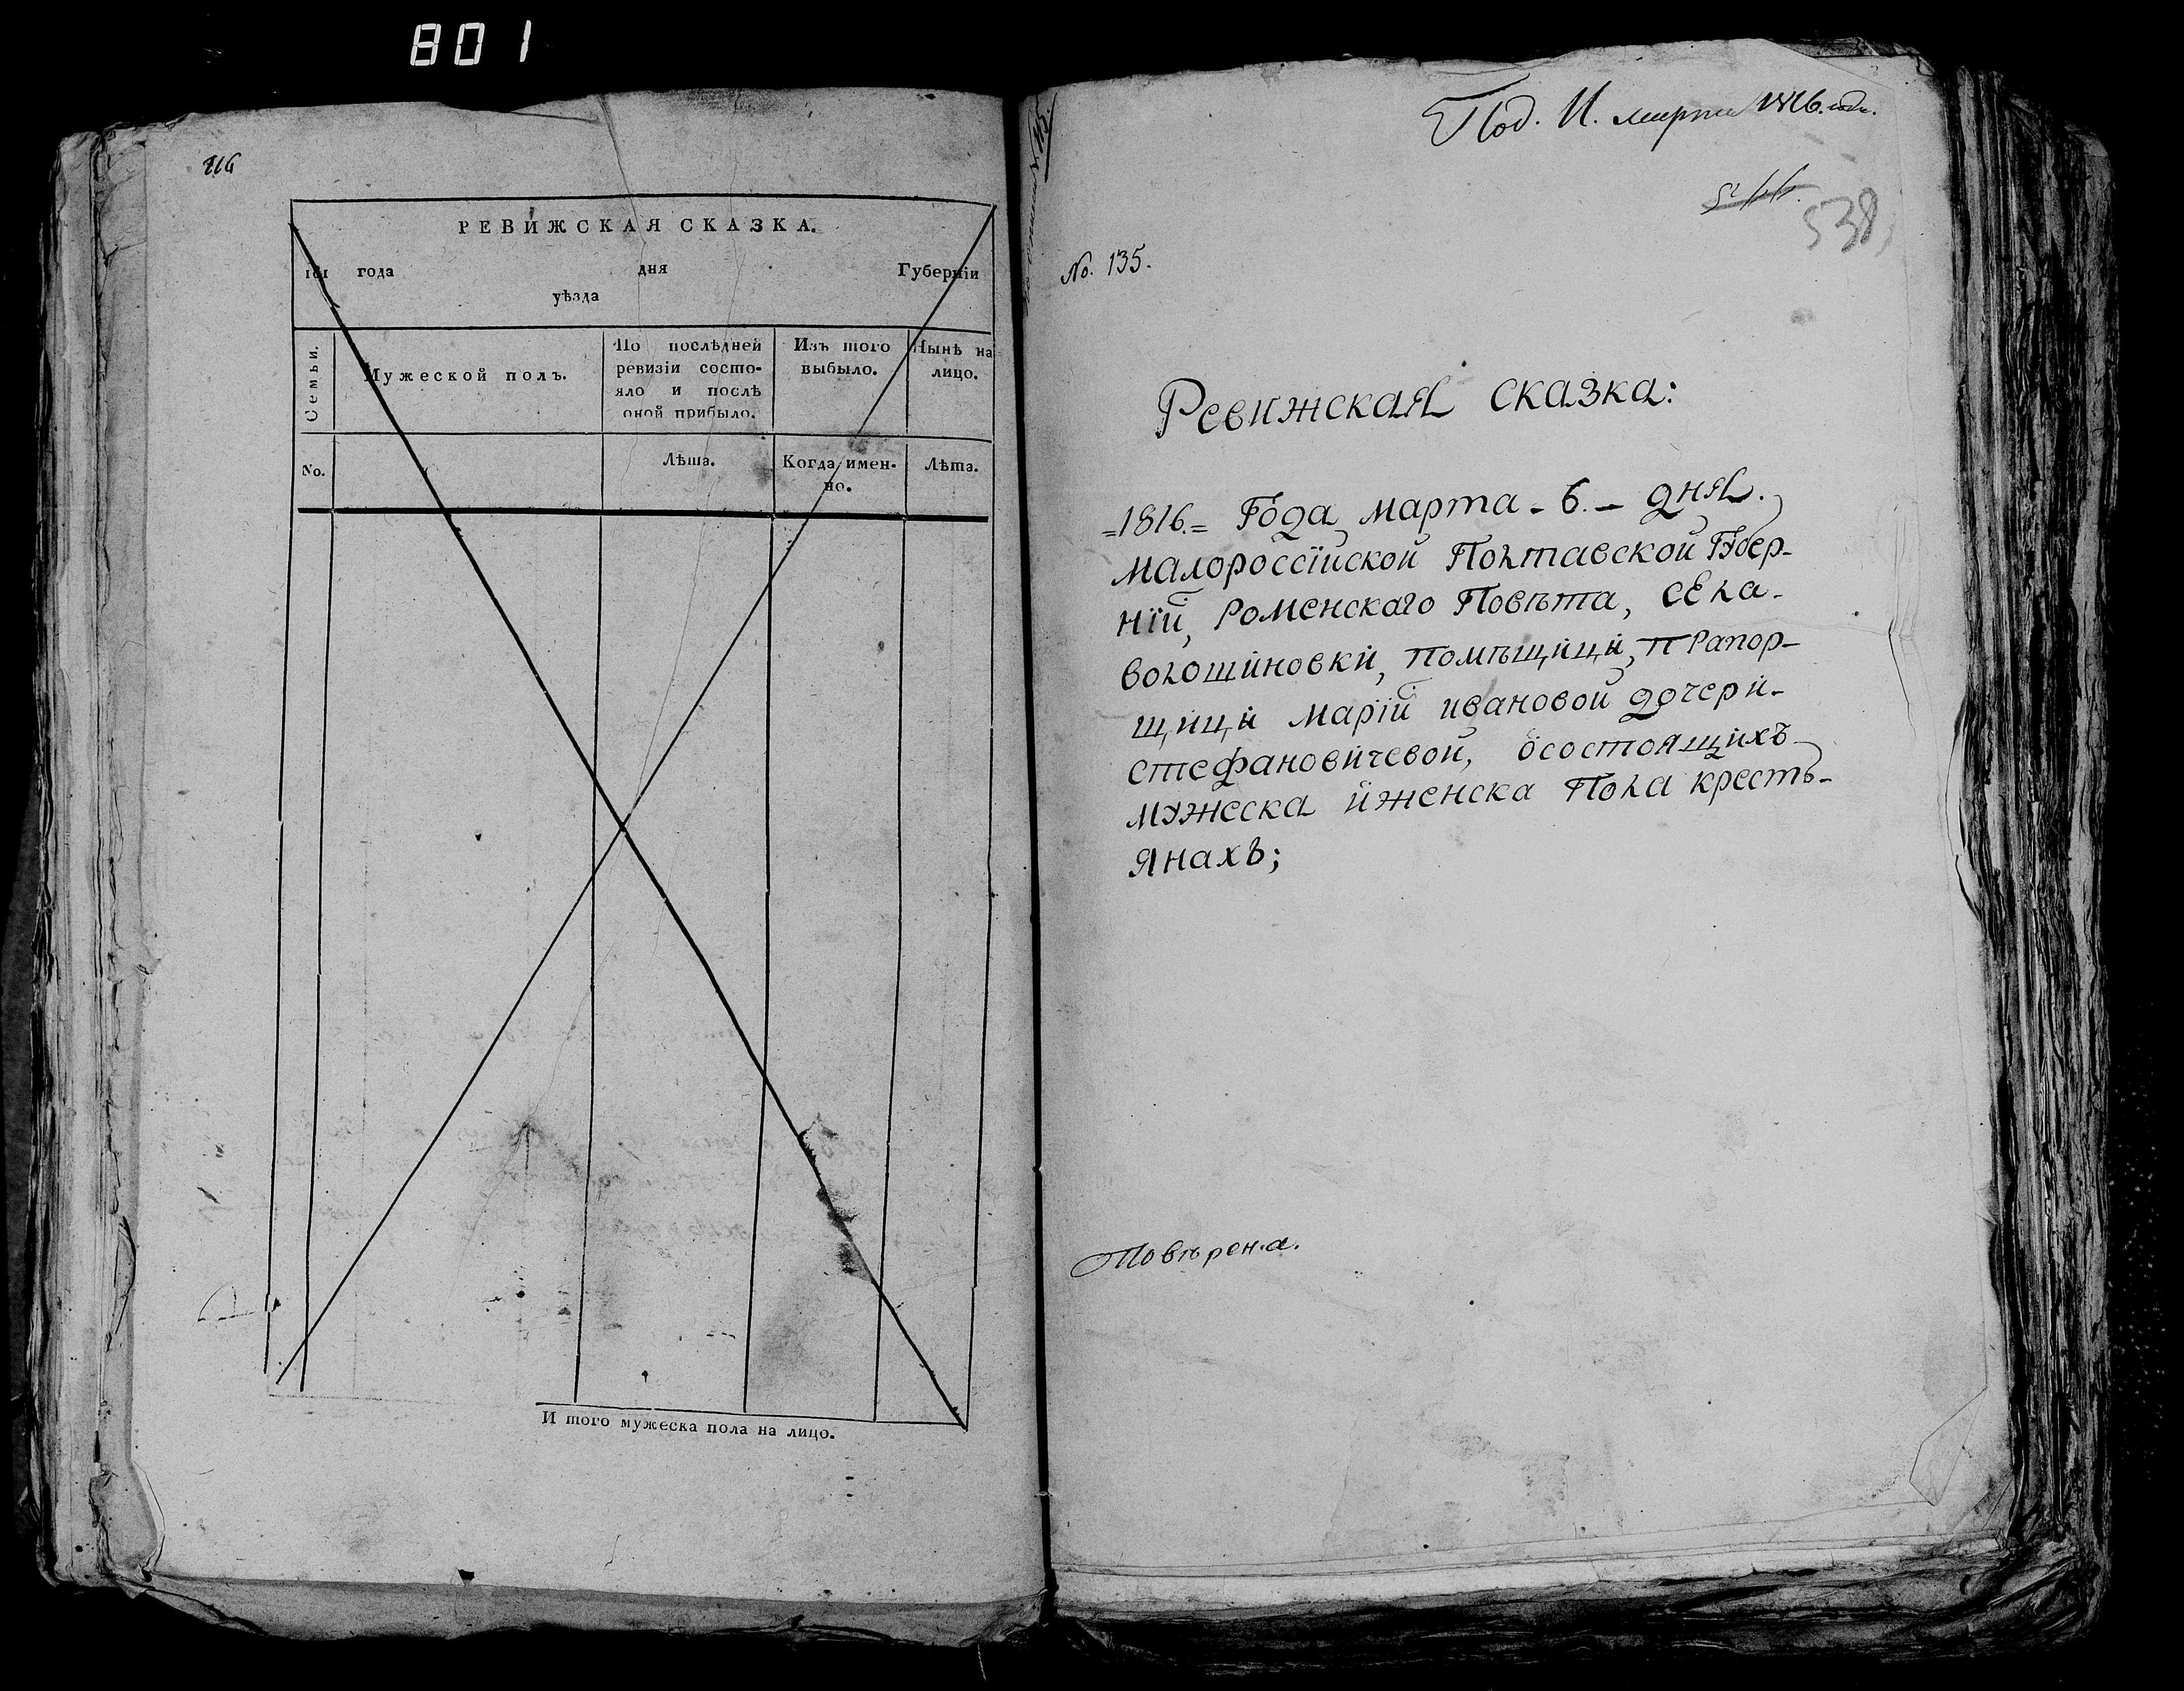 801
116
РЕВИЖСКАЯ СКАЗКА.
181 года дня Губерніи
уѣзда
Семьи.
Мужеской полъ.
По послѣдней ревизіи состо-
яло и послѣ
оной прибыло.
Изъ того
выбыло.
Нынѣ на
лицо.
No.
Лѣта.
Когда имен-
но.
Лѣта.
И того мужеска пола на лицо.
Под. 11. марта 1816. года.
538
No. 135.
Ревижская сказка:
=1816.= Года марта - 6. - дня.
малороссїйской Полтавской Губер-
нїй, Роменскаго Повѣта, села-
волошиновки, помѣщици, прапор-
щици марїй ивановой дочери-
стефановичевой, осостоящихъ
мужеска иженска Пола кресть-
янахъ;
Повѣрена.